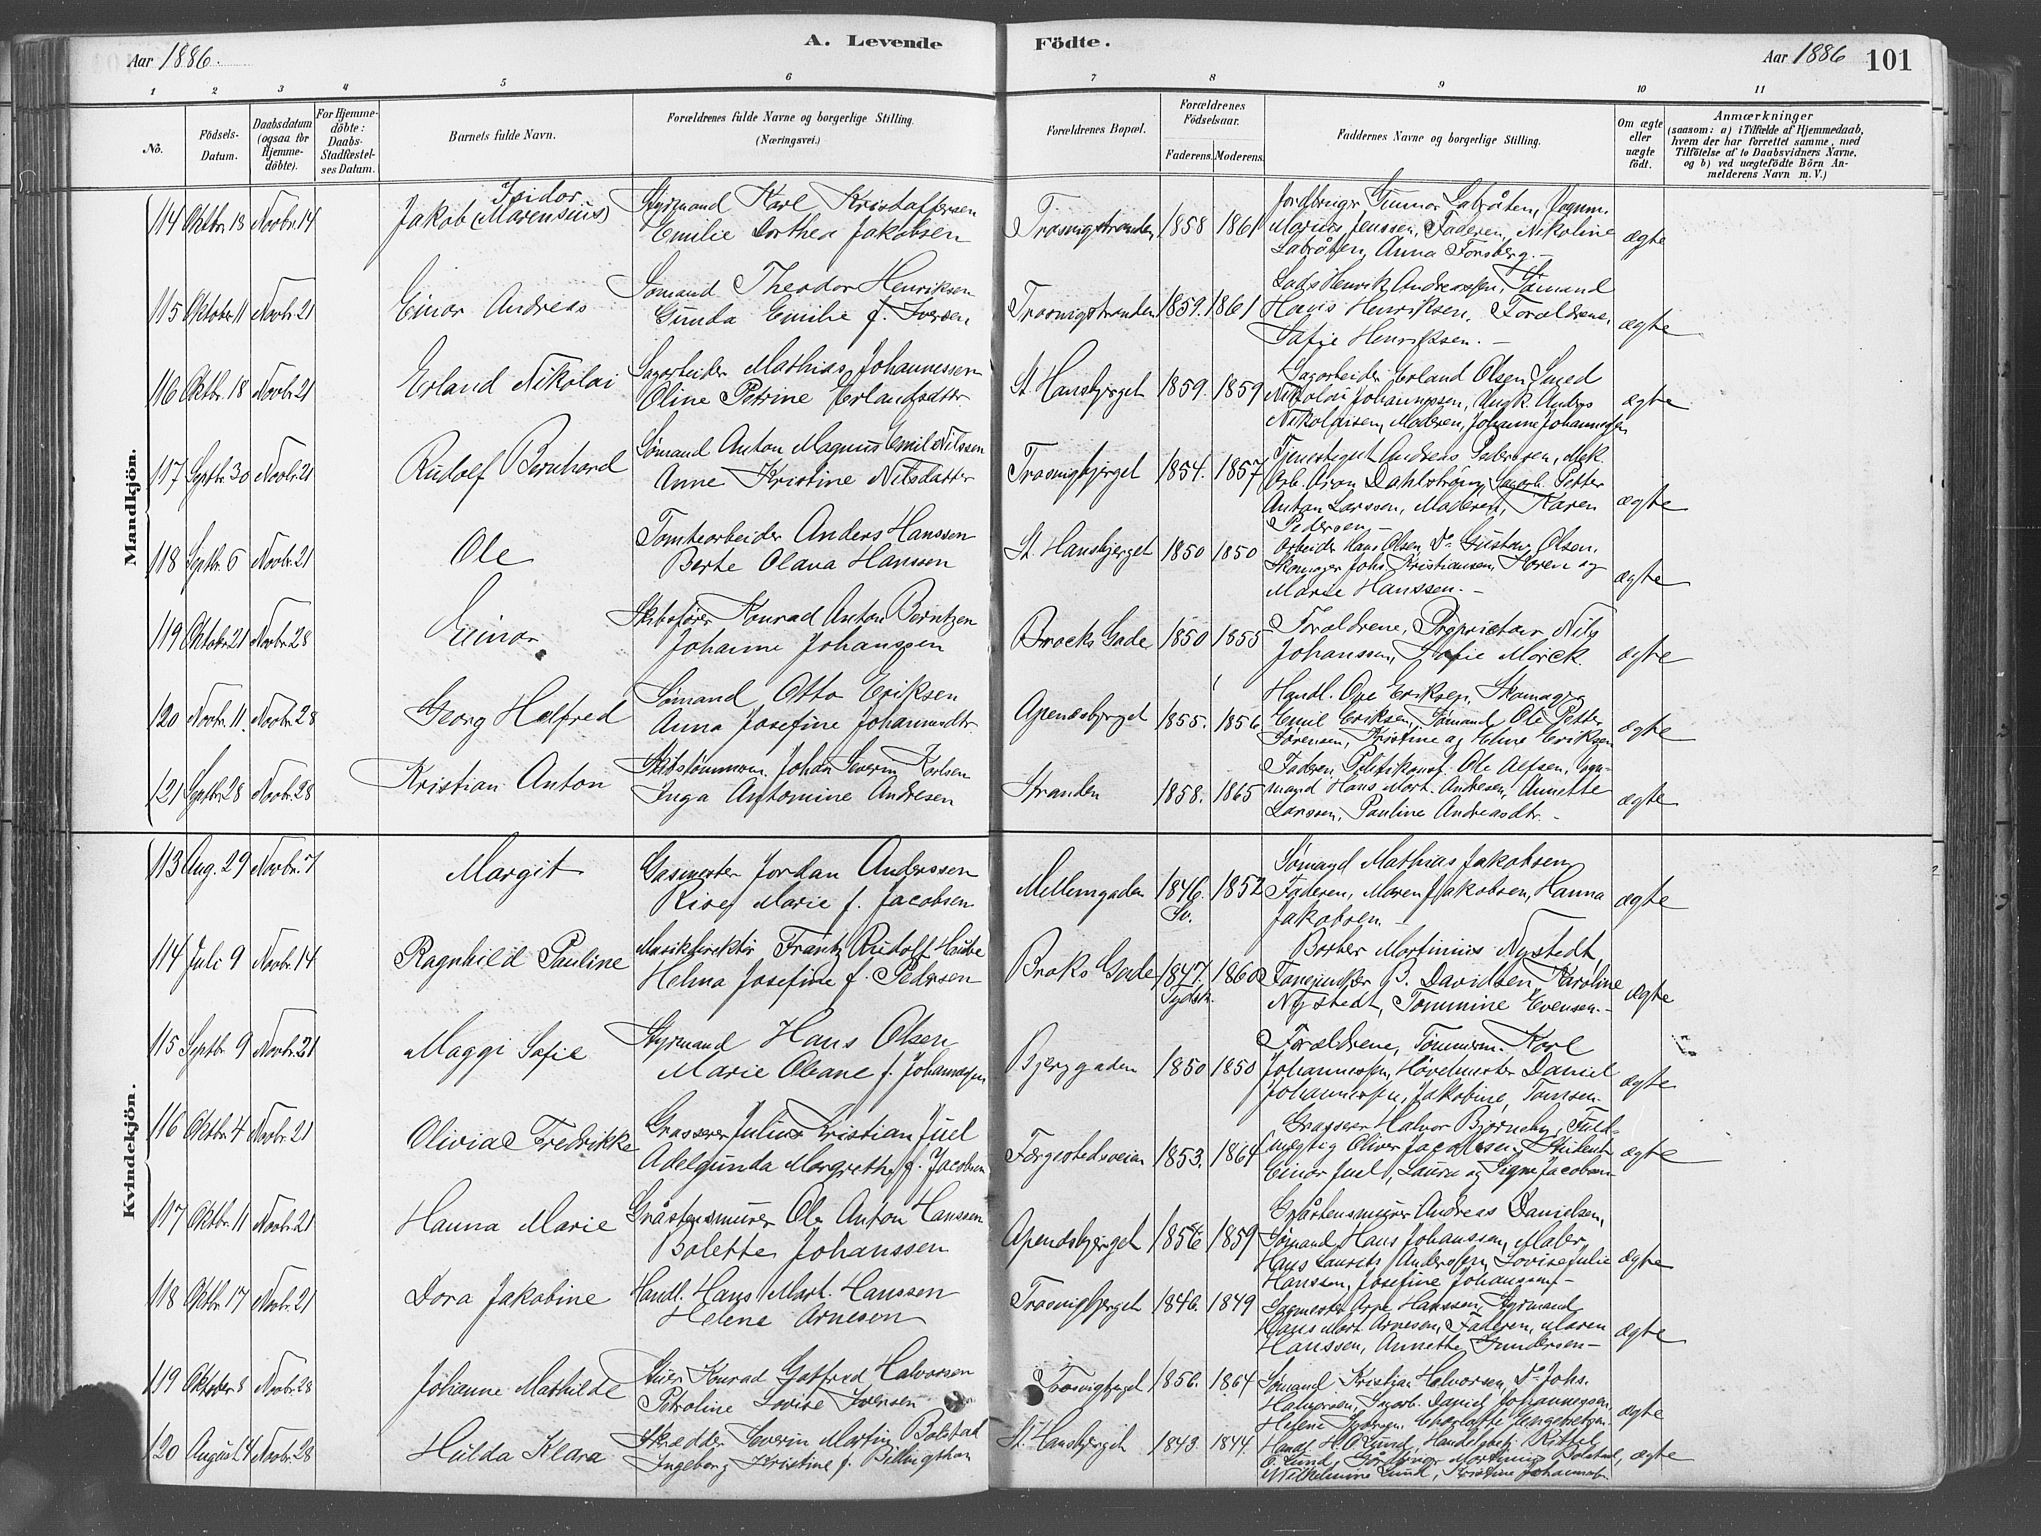 Aar 1886.
A. Levende
Födte.
Aar 1886
101
1 2 3 4 5 6 7 8 9 10 11
No.
Födsels-Datum.
Daabsdatum (ogsaa för Hjemmedöbte).
For Hjemmedöbte: Daabs-Stadfæstelses Datum.
Barnets fulde Navn.
Forældrenes fulde Navne og borgerlige Stilling.
(Næringsvei.)
Forældrenes Bopæl.
Forældrenes Födselsaar.
Faderens. Moderens.
Faddernes Navne og borgerlige Stilling.
Om ægte eller uægte födt.
Anmærkninger
(saasom: a) i Tilfælde af Hjemmedaab,
hvem der har forrettet samme, med
Tilföielse af to Daabsvidners Navne,
og b) ved uægtefödte Börn An-
melderens Navn m. V.)
Mandkjön.
114 Oktbr. 13 Novbr. 14
Isidor
Jakob (Marensius)
Styrmand Karl Kristoffersen
Emilie Dorthea Jakobsen
Trosvigstranden 1858 1861
Marius Jenssen, Faderen, Nikoline
Anna Forsberg. –
ægte
115 Oktober 11 Novbr. 21
Einar Andreas
Sømand Theodor Henriksen
Gunda Emilie f. Iversen
Trosvigstranden 1859. 1861
Lods Henrik Andreassen, Sømand
Hans Henriksen, Forældrene,
Sofie Henriksen. –
ægte
116 Oktbr. 18 Novbr. 21
Erland Nikolai
Sagarbeider Mathias Johannessen
Oline Petrine Erlandsdttr
St. Hansbjerget 1859. 1859
Sagarbeider Erland Olsen, Smed
Nikolai Johannessen, Ungk. Anders
Nikolaisen, Moderen, Johanne Johannessen
ægte
117 Septbr. 30 Novbr. 21
Rudolf Bernhard
Sømand Anton Magnus Emil Nilssen
Anne Kristine Nilsdatter
Trosvigbjerget 1854. 1857
Tjenestegut Andreas Pedersen, Mek.
Arb. Oskar Dahlstrøm, Sagarb. Petter
Anton Larssen, Moderen, Karen
Pedersen –
ægte
118 Septbr. 6 Novbr. 21
Ole
Tomtearbeider Anders Hanssen
Berte Olava Hanssen
St. Hansbjerget 1850 1850
Arbeider Hans Olsen, Do Gustav Olsen,
Skomager Johs Kristiansen, Karen og
Marie Hanssen. –
ægte
119 Oktobr. 21 Novbr. 28
Einar
Skibsfører Konrad Anton Berntzen
Johanne Johanssen
Brocks Gade 1850 1855
Forældrene, Proprietær Nils
Johanssen, Sofie Mørck.
ægte
120 Novbr. 11. Novbr. 28
Georg Halfred
Sømand Otto Eriksen
Anna Josefine Johannesdtr.
Apenæsbjerget 1855. 1856
Handl. Ole Eriksen, Skomager
Emil Eriksen, Sømand Ole Petter
Sørensen, Kristine og Eline Eriksen
ægte
121 Septbr. 28 Novbr. 28
Kristian Anton
Skibstømmerm. Johan Severin Karlsen
Inga Antomine Andresen
Stranden 1858. 1865
Faderen, Politikonst. Ole Alfsen, Vogn-
mand Hans Mort. Andresen, Annette
Larssen, Pauline Andreasdtr. –
ægte
Kvindekjön.
113 Aug. 29 Novbr. 7
Margit
Gasmester Jordan Anderssen
Marie f. Jacobsen
Mellemgaden 1846. Sv. 1852
Sømand Mathias Jakobsen,
Faderen, Maren Jakobsen, Hanna
Jakobsen –
ægte
114 Juli 9 Novbr. 14
Ragnhild Pauline
Musikdirektør Frantz Rudolf Haube
Helma Josefine f. Pedersen
Broks Gade 1847. Tydsk. 1860
Barber Martinius Nystedt,
Davidsen, Karoline
Nystedt, Tommine Evensen –
ægte
115 Septbr. 9 Novbr. 21
Maggi Sofie
Styrmand Hans Olsen
Marie Oleane f. Johannessen
Bjerggaden 1850 1850
Forældrene, Tømmerm. Karl
Johannessen, Høvelmester Daniel
Johannessen, Jakobine Tomsen.
ægte
116 Oktbr. 4 Novbr. 21
Olivia Fredrikke
Grosserer Julius Kristian Juel
Adelgunda Margrethe f. Jacobsen
Færgestedsveien 1853. 1864
Grosserer Halvor Bjørneby, Fuld-
mægtig Oliver Jacobsen, Student
Einar Juel, Laura og Signe Jacobsen
ægte
117 Oktbr. 11 Novbr. 21
Hanna Marie
Gråstensmurer Ole Anton Hanssen
Bolette Johanssen
Apenæsbjerget 1856 1859
Gråstensmurer Andreas Danielsen,
Sømand Hans Johanssen, Maler
Hans Laurits Anderssen, Lovise Julie
Hanssen, Josefine Johanssen –
ægte
118 Oktbr. 17 Novbr. 21
Dora Jakobine
Handl. Hans Mart. Hanssen
Helene Arnesen
Trosvigbjerget 1846. 1849
Sagmester Arne Hanssen, Styrmand
Hans Mart. Arnesen, Faderen, Maren
Hanssen, Annette Gundersen –
ægte
119 Oktober 8 Novbr. 28
Johanne Mathilde
Konrad Gotfred Halvorsen
Petroline Lovise Iversen
Trosvigbjerget 1856. 1864
Sømand Kristian Halvorsen, Do Johs.
Halvorsen, Sagarb. Daniel Johannessen,
Helene Charlotte Engebretsen
ægte
120 August 14 Novbr. 28
Hulda Klara
Skrædder Severin Martin Bolstad
Ingeborg Kristine f.
St. Hansbjerget 1843. 1844
Handl. H. O. Lund,
E. Lund, Bolstad,
Wilhelmine Lund, Kristine Johannesen
ægte